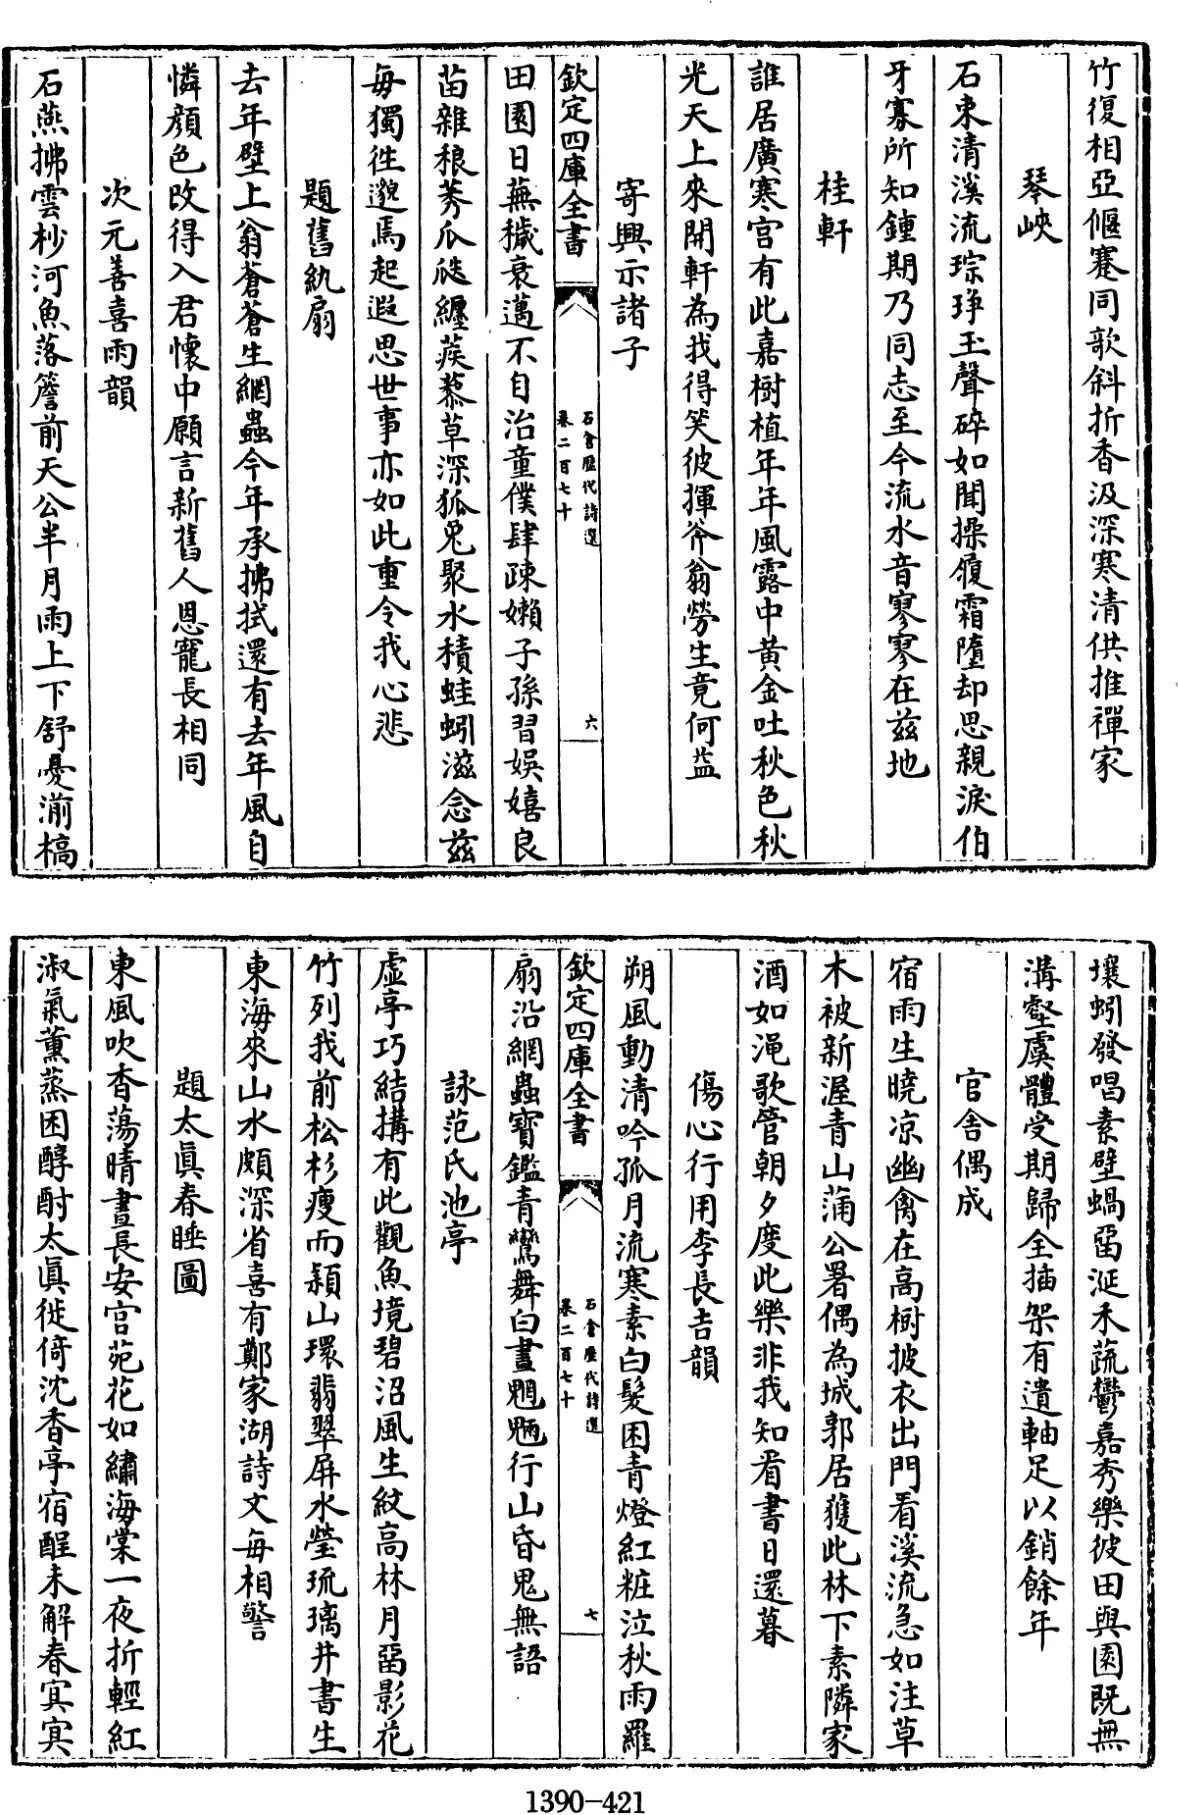 竹復相亞偃蹇同歌斜折香汲深寒清供推禪家
琴峽
石束清溪流琮琤玉聲碎如聞操履霜墮却思親淚伯
牙寡所知鍾期乃同志至今流水音寥寥在兹地
桂軒
誰居廣寒宮有此嘉樹植年年風露中黄金吐秋色秋
光天上來開軒為我得笑彼揮斧翁勞生竟何益
寄興示諸子
欽定四庫全書
石倉歷代詩選
卷二百七十
六
田園日蕪穢衰邁不自治童僕肆疎嬾子孫習娱嬉良
苗雜稂莠瓜瓞纏蒺藜草深狐兎聚水積蛙蚓滋念兹
毎獨徃邈焉起遐思世事亦如此重令我心悲
題舊紈扇
去年壁上翁蒼蒼生網蟲今年承拂拭還有去年風自
憐顔色改得入君懷中願言新舊人恩寵長相同
次元善喜雨韻
石燕拂雲杪河魚落簷前天公半月雨上下舒憂湔槁
壤蚓發唱素壁蝸留涎禾蔬鬱嘉秀樂彼田與園既無
溝壑虞體受期歸全插架有遺軸足以銷餘年
官舍偶成
宿雨生曉凉幽禽在高樹披衣出門看溪流急如注草
木被新渥青山滿公署偶為城郭居獲此林下素隣家
酒如澠歌管朝夕度此樂非我知看書日還暮
傷心行用李長吉韻
朔風動清吟孤月流寒素白髮困青燈紅粧泣秋雨羅
欽定四庫全書
石倉歷代詩選
卷二百七十
七
扇沿網蟲寶鑑青鸞舞白晝魍魎行山昏鬼無語
詠范氏池亭
虚亭巧結搆有此觀魚境碧沼風生紋高林月留影花
竹列我前松杉瘦而頴山環翡翠屏水瑩琉璃井書生
東海來山水頗深省喜有鄭家湖詩文毎相警
題太真春睡圖
東風吹杳蕩晴晝長安宫苑花如繡海棠一夜折輕紅
淑氣薰蒸困醇酎太真徙倚沈香亭宿酲未解春㝠㝠
1390-421